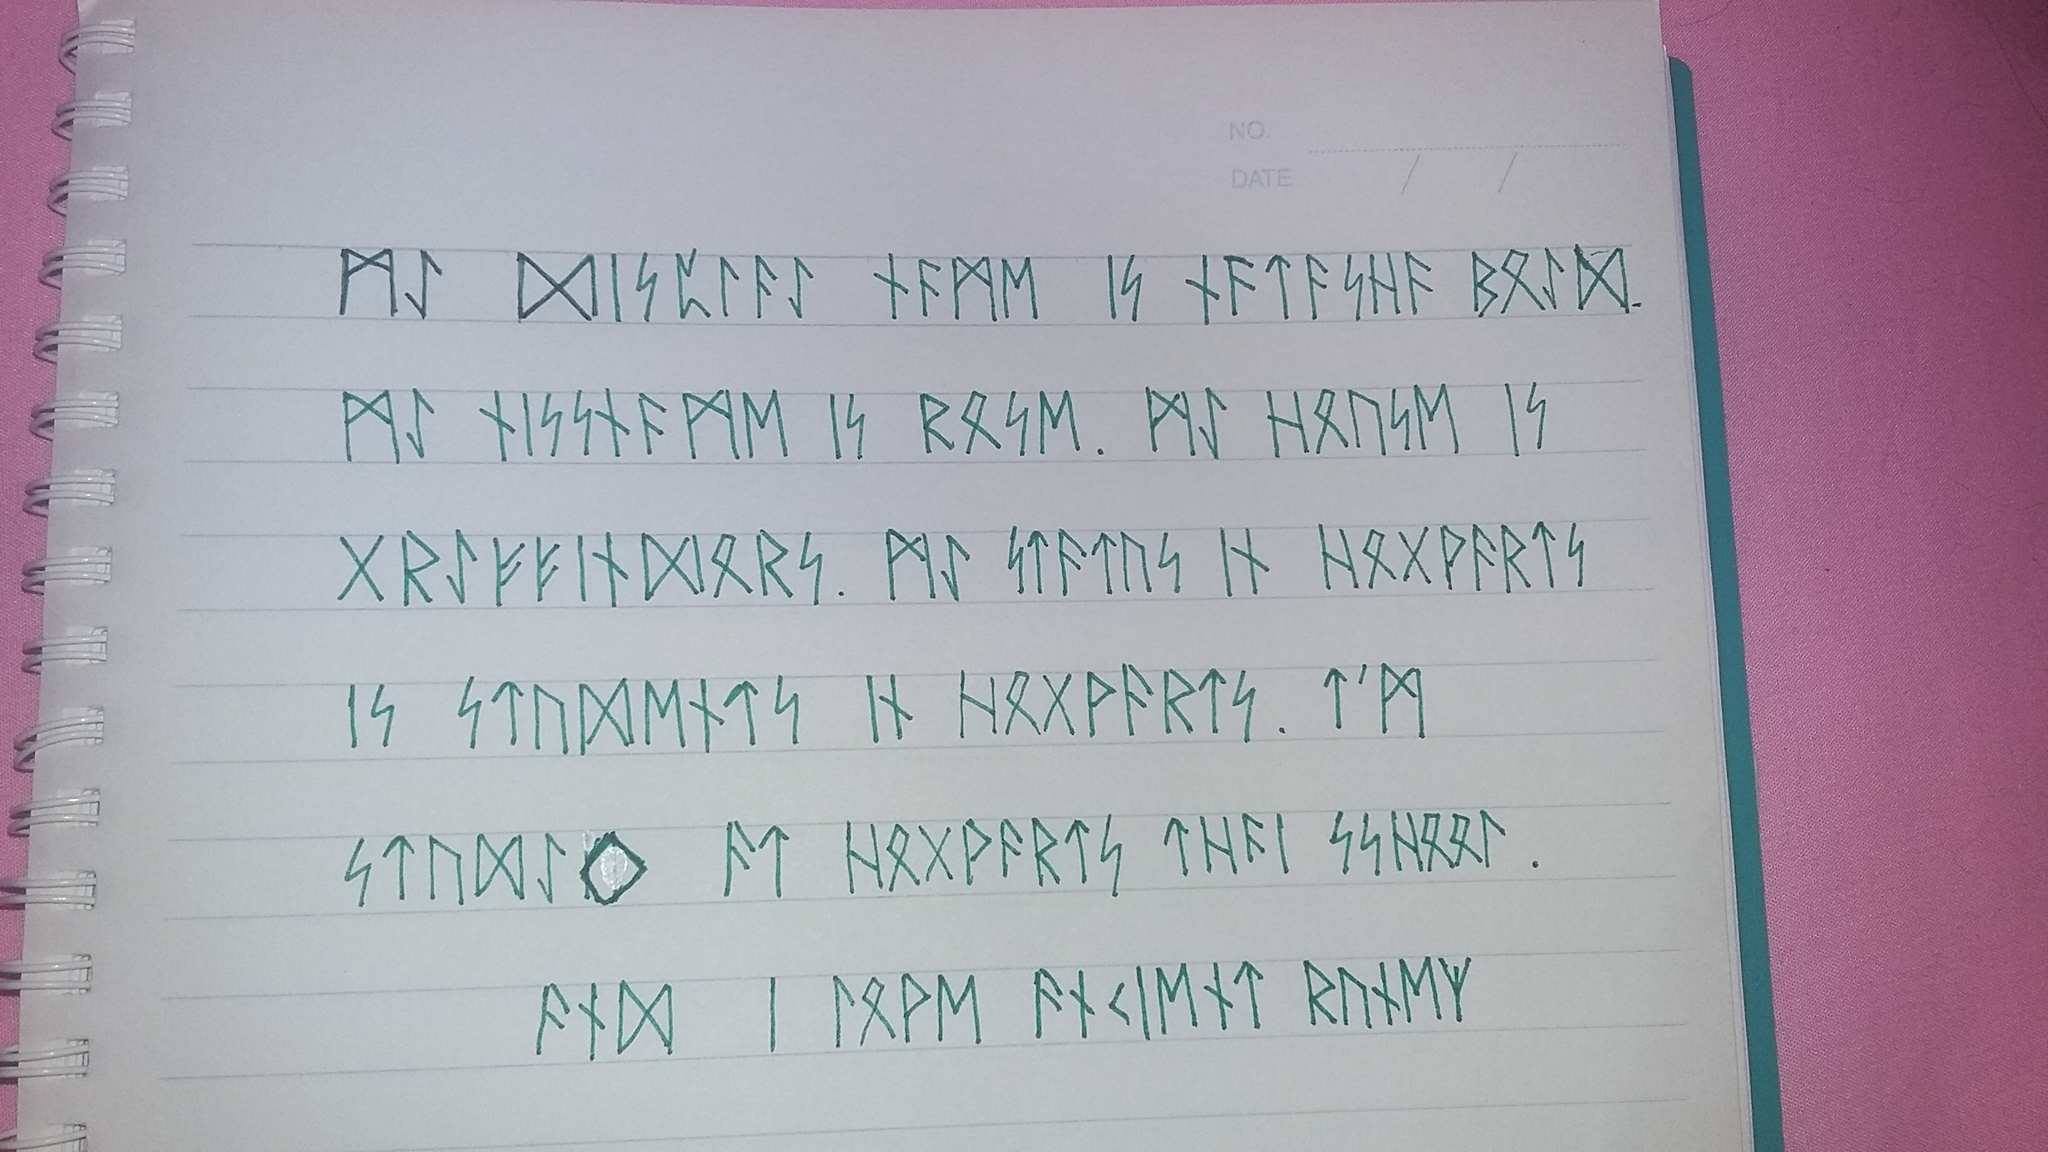 ᛗᛇ ᛞᛁᛋᛈᛚᚨᛇ ᚾᚨᛗE ᛁᛋ ᚾᚨᛏᚨᛋᚺᚨ ᛒᛟᛇᛞ.
ᛗᛇ ᚾᛁᛋᛋᚾᚨᛗE ᛁᛋ ᚱᛟᛋE. ᛗᛇ ᚺᛟᚢᛋE ᛁᛋ
ᚷᚱᛇᚠᚠᛁᚾᛞᛟᚱᛋ. ᛗᛇ ᛋᛏᚨᛏᚢᛋ ᛁᚾ ᚺᛟᚷᚹᚨᚱᛏᛋ
ᛁᛋ ᛋᛏᚢᛞEᚾᛏᛋ ᛁᚾ ᚺᛟᚷᚹᚨᚱᛏᛋ. ᛏ'ᛗ
ᛋᛏᚢᛞᛇᛜ ᚨᛏ ᚺᛟᚷᚹᚨᚱᛏᛋ ᛏᚺᚨᛁ ᛋᛋᚺᛟᛟᛚ.
ᚨᚾᛞ ᛁ ᛚᛟᚹE ᚨᚾᚲᛁEᚾᛏ ᚱᚢᚾEᛉ
NO.
DATE / /